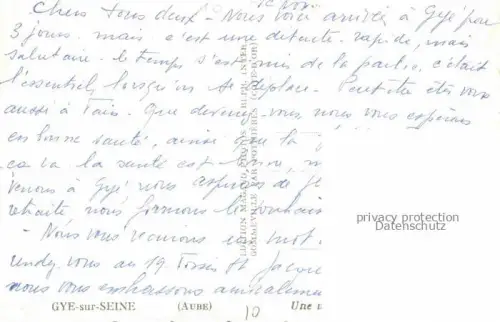 Chers tous deux - Nous voici arrivés à Gyé pour
3 jours. mais c'est une détente rapide, mais
salutaire. le temps s'est mis de la partie, c'était
l'essentiel, lorsqu'on se déplace. Peut être êtes vous
aussi à Tain. Que devenez vous nous vous espérons
en bonne santé, ainsi que la
ça va la santé est bonne,
venons à Gyé nous aspirons de
retraite, nous formons le souhait
- Nous vous réunions un mot.
rendez vous au 19
nous vous embrassons amicalement
EDITION
GOMMEVILLE PAR POTHIÈRES (CÔTE-D'OR)
privacy protection
Datenschutz
GYE-sur-SEINE (AUBE) 10 Une